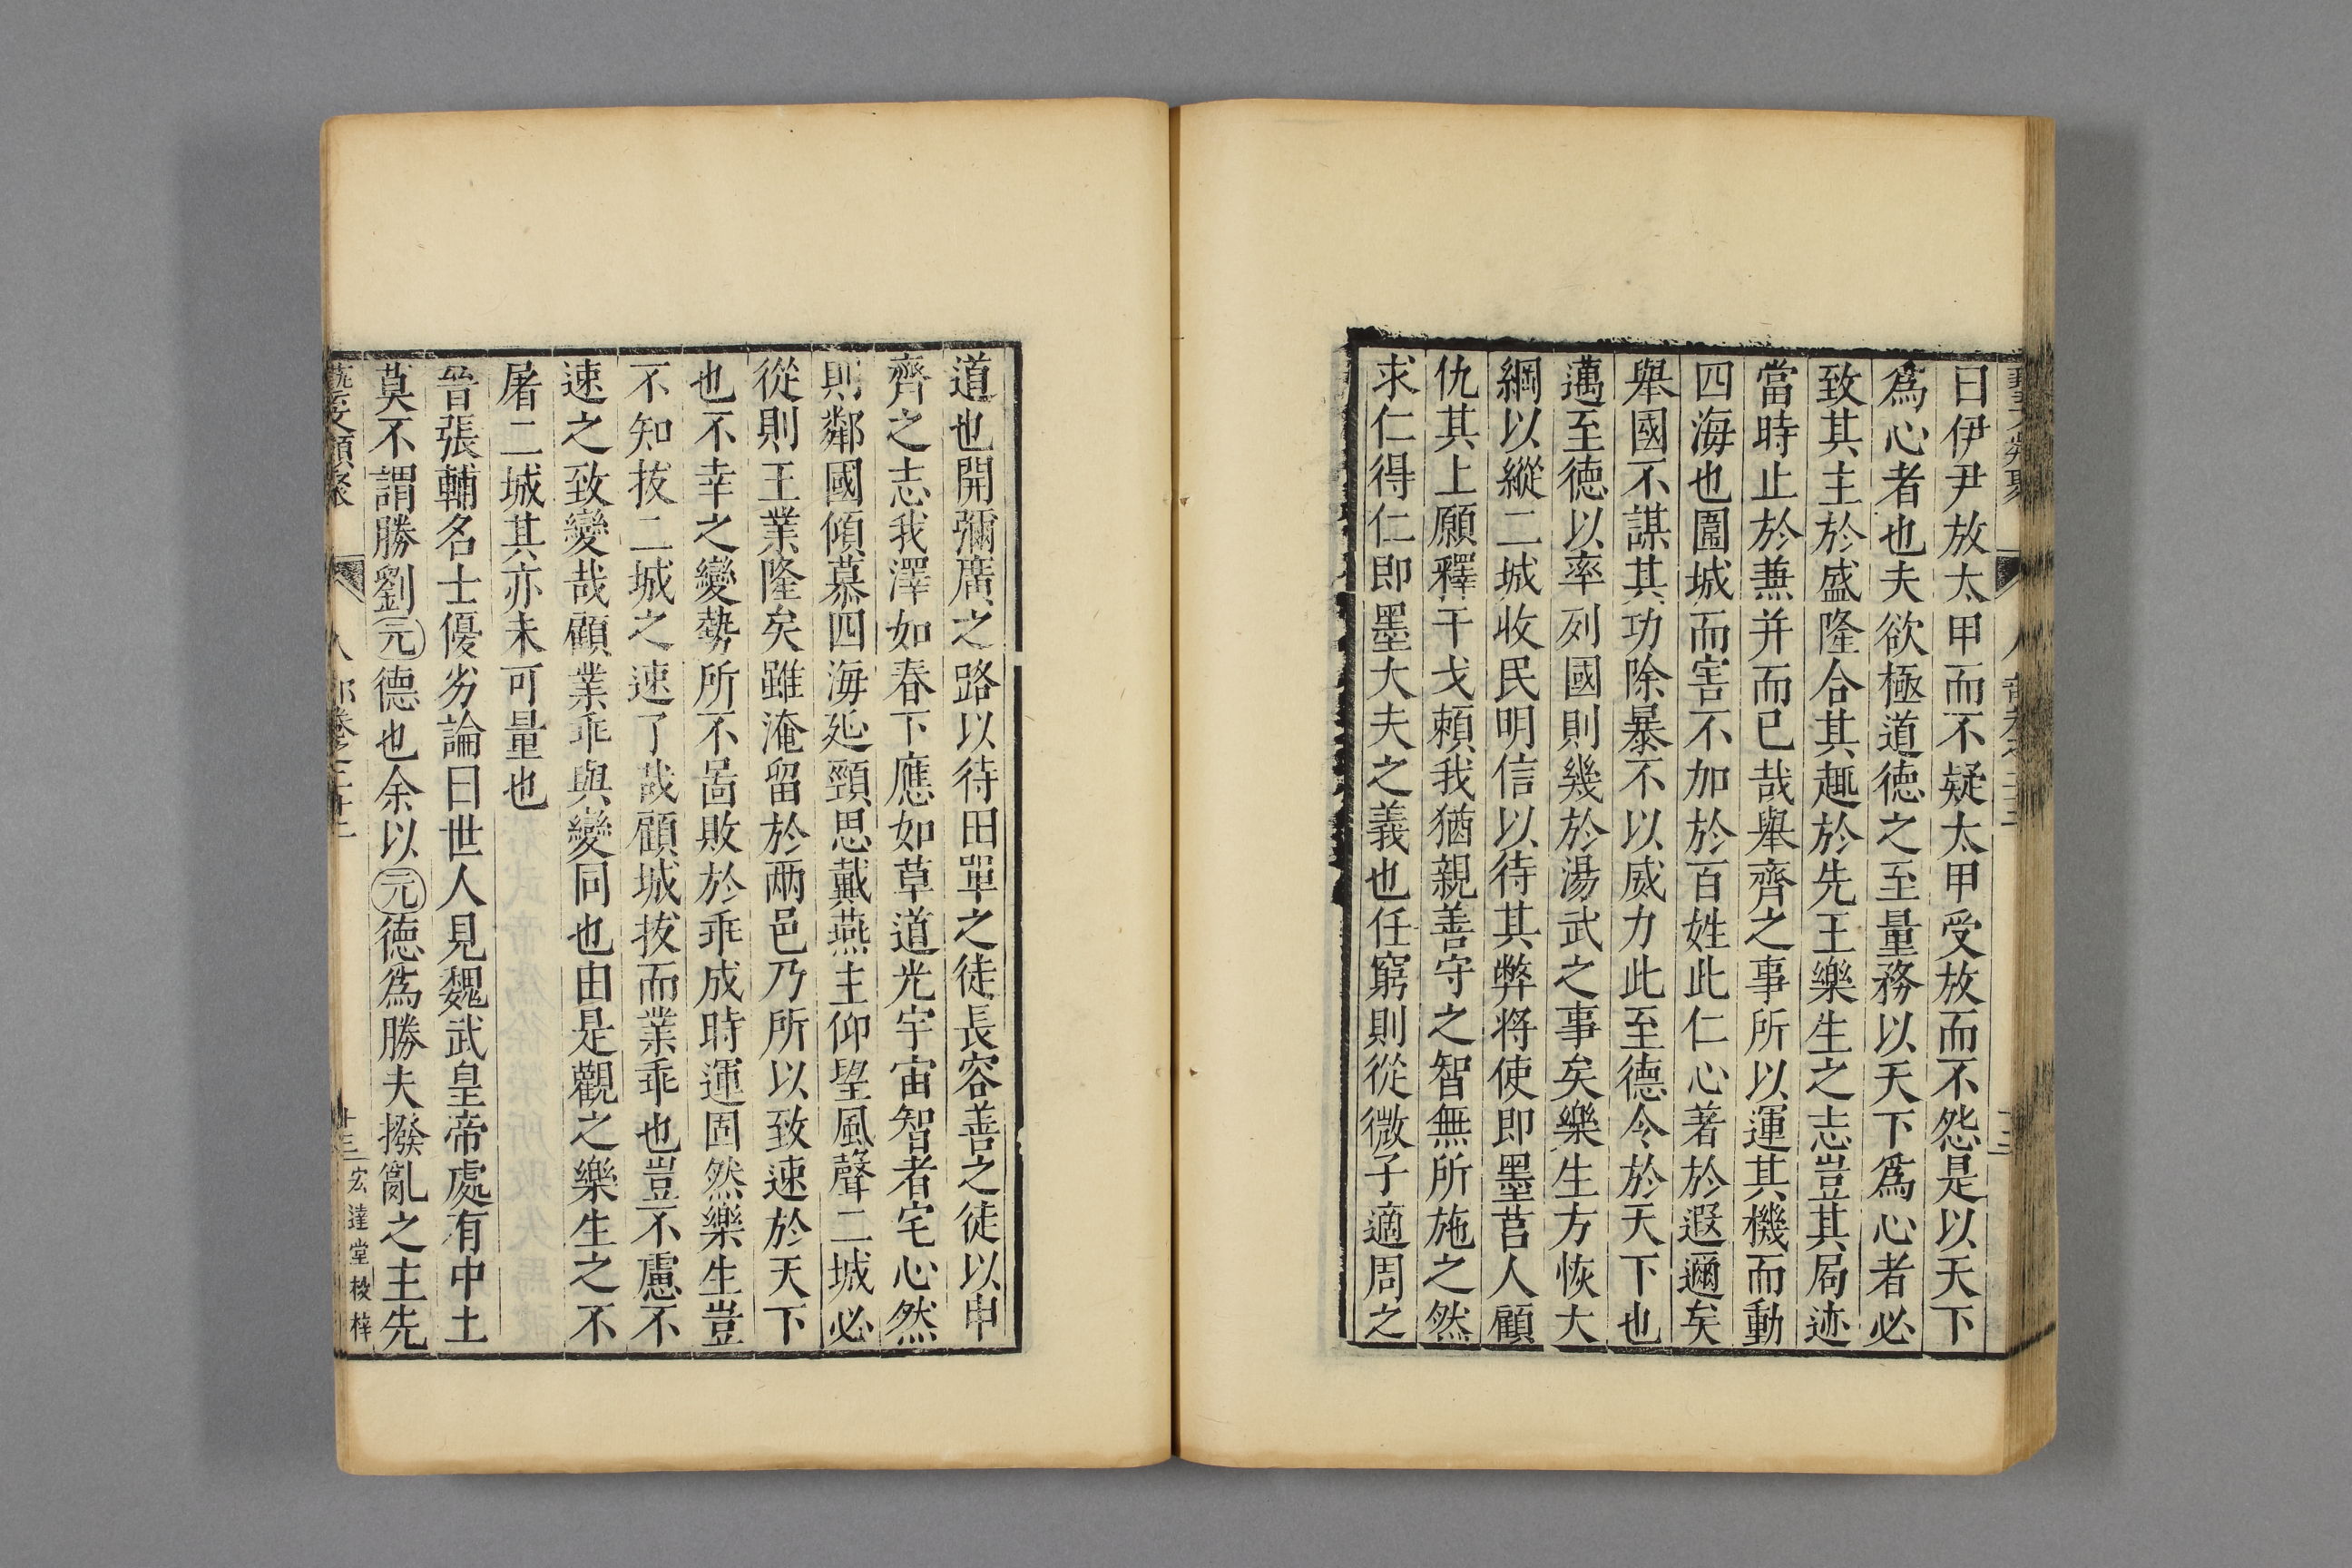 曰伊尹放太甲而不疑太甲受放而不怨是以天下
爲心者也夫欲極道德之至量務以天下爲心者必
致其主於盛隆合其趣於先王樂生之志豈其局迹
當時止於兼并而已哉舉齊之事所以運其機而動
四海也圍城而害不加於百姓此仁心著於遐邇矣
舉國不謀其功除暴不以威力此至德令於天下也
邁至德以率列國則幾於湯武之事矣樂生方恢大
綱以縱二城收民明信以待其弊將使即墨莒人顧
仇其上願釋干戈賴我猶親善守之智無所施之然
求仁得仁即墨大夫之義也任窮則從微子適周之
道也開彌廣之路以待田單之徒長容善之徒以申
齊之志我澤如春下應如草道光宇宙智者宅心然
則鄰國傾慕四海延頸思戴燕主仰望風聲二城必
從則王業隆矣雖淹留於兩邑乃所以致速於天下
也不幸之變勢所不啚敗於乖成時運固然樂生豈
不知拔二城之速了哉顧城拔而業乖也豈不慮不
速之致變哉顧業乖與變同也由是觀之樂生之不
屠二城其亦未可量也
晉張輔名士優劣論曰世人見魏武皇帝處有中土
莫不謂勝劉元德也余以元德爲勝夫撥亂之主先
藝文類聚 人部卷之二十二 廿三 宏達堂校梓